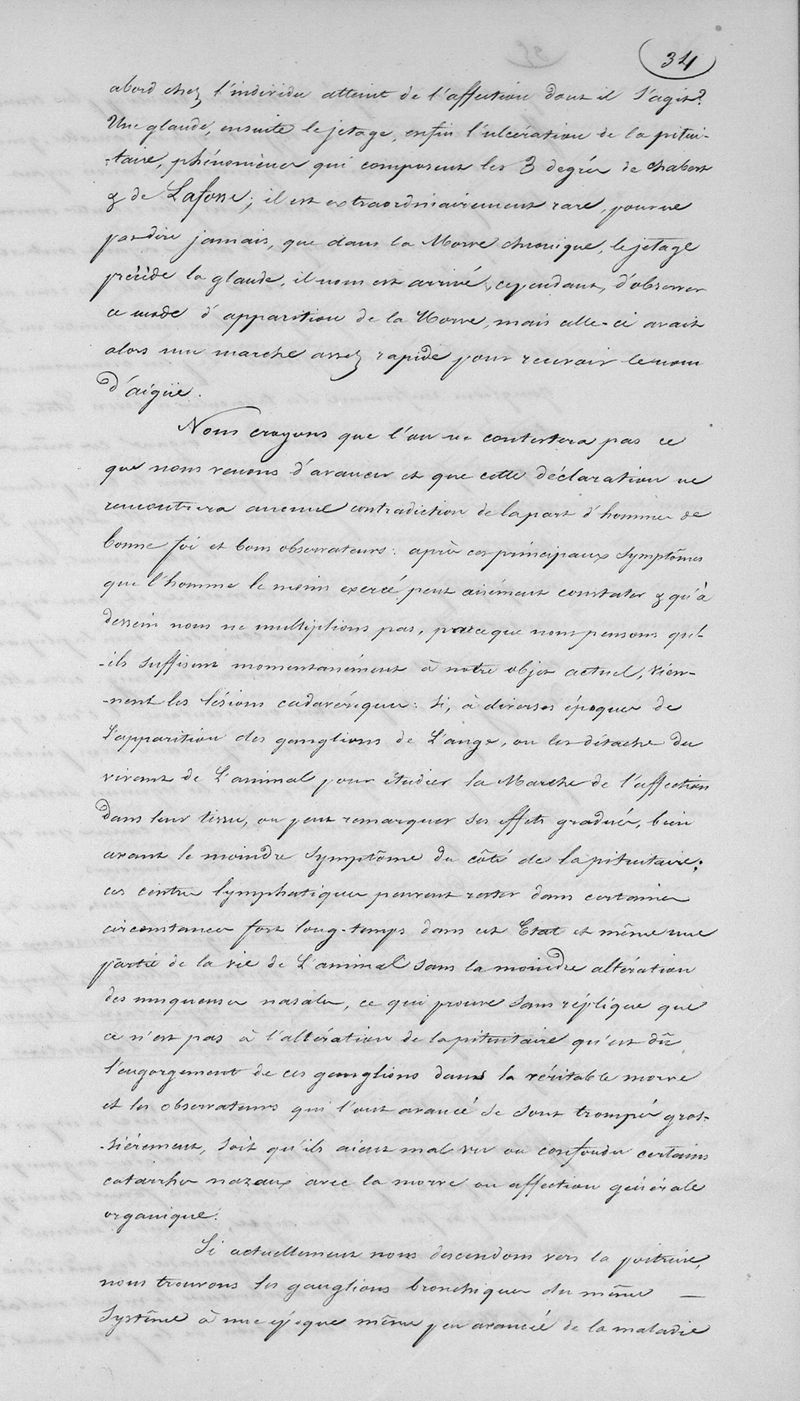 34
abord chez l'individu atteint de l'affection dont il s'agit?
Une glande, ensuite le jetage, enfin l'ulcération de la pitui-
-taire, phénomènes qui composent les 3 degrés de chabert
& de Lafosse; il est extraordinairement rare, pour ne
pas dire jamais, que dans la Morve chronique, le jetage
précède la glande, il nous est arrivé, cependant, d'observer
ce mode d'apparition de la Morve, mais elle-ci avait
alors une marche assez rapide pour recevoir le nom
d'aigüe.
Nous croyons que l'on ne contestera pas ce
que nous venons d'avancer et que cette déclaration ne
rencontrera aucune contradiction de la part d'hommes de
bonne foi et bons observateurs: après ces principaux symptômes
que l'homme le moins exercé peut aisément constater & qu'à
dessein nous ne multiplions pas, parce que nous pensons qu'-
-ils suffisent momentanément à notre objet actuel, vien-
-nent les lésions cadavériques: si, à diverses époques de
l'apparition des ganglions de l'auge, on les détache du
vivant de l'animal pour étudier la Marche de l'affection
dans leur tissu, on peut remarquer ses effets gradués, bien
avant le moindre symptôme du côté de la pituitaire;
ces centres lymphatiques peuvent rester dans certaines
circonstances fort long-temps dans cet Etat et même une
partie de la vie de l'animal sans la moindre altération
des muqueuses nasales, ce qui prouve sans réplique que
ce n'est pas à l'altération de la pituitaire qu'est dû
l'engorgement de ces ganglions dans la véritable morve
et les observateurs qui l'ont avancé se sont trompés gros-
-sièrement, soit qu'ils aient mal vu ou confondu certains
catarrhes nazaux avec la morve ou affection générale
organique.
Si actuellement nous descendons vers la poitrine,
nous trouvons les ganglions bronchiques du même —
Système à une époque même peu avancée de la maladie